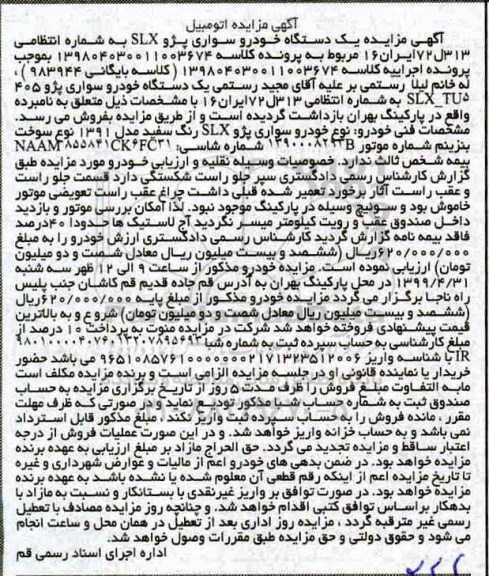 آگهی مزایده اتومبیل
آگهی مزایده یک دستگاه خودرو سواری پژو SLX به شماره انتظامی
۳۱۳ل۷۲ایران۱۶ مربوط به پرونده کلاسه ۱۳۹۸۰۴۰۳۰۰۱۱۰۰۳۶۷۴ بموجب
پرونده اجراییه کلاسه ۱۳۹۸۰۴۰۳۰۰۱۱۰۰۳۶۷۴ (کلاسه بایگانی ۹۸۳۹۴۴) ،
له خانم لیلا رستمی بر علیه آقای مجید رستمی یک دستگاه خودرو سواری پژو ۴۰۵
SLX_TU۵ به شماره انتظامی ۳۱۳ل۷۲ایران۱۶ با مشخصات ذیل متعلق به نامبرده
واقع در پارکینگ بهران بازداشت گردیده است و از طریق مزایده بفروش می رسد.
مشخصات فنی خودرو: نوع خودرو سواری پژو SLX رنگ سفید مدل ۱۳۹۱ نوع سوخت
بنزینم شماره موتور شماره شاسی:
بیمه شخص ثالث ندارد. خصوصیات وسیله نقلیه و ارزیابی خودرو مورد مزایده طبق
گزارش کارشناس رسمی دادگستری سپر جلو راست شکستگی دارد قسمت جلو راست
و عقب راست آثار برخورد تعمیر شده قبلی داشت چراغ عقب راست تعویضی موتور
خاموش بود و سوئیچ وسیله در پارکینگ موجود نبود. لذا امکان بررسی موتور و بازدید
داخل صندوق عقب و رویت کیلومتر میسر نگردید آج لاستیک ها حدودا ۴۰درصد
فاقد بیمه نامه گزارش گردید کارشناس رسمی دادگستری ارزش خودرو را به مبلغ
۶۲۰/۰۰۰/۰۰۰ریال (ششصد و بیست میلیون ریال معادل شصت و دو میلیون
تومان) ارزیابی نموده است. مزایده خودرو مذکور از ساعت ۹ الی ۱۲ ظهر سه شنبه
۱۳۹۹/۴/۳۱ در محل پارکینگ بهران به آدرس قم جاده قدیم قم کاشان جنب پلیس
راه ناجا برگزار می گردد مزایده خودرو مذکور از مبلغ پایه ۶۲۰/۰۰۰/۰۰۰ریال
(ششصد و بیست میلیون ریال معادل شصت و دو میلیون تومان) شروع و به بالاترین
قیمت پیشنهادی فروخته خواهد شد شرکت در مزایده منوط به پرداخت ۱۰ درصد از
مبلغ کارشناسی به حساب سپرده ثبت به شماره شبا
IR با شناسه واریز می باشد حضور
خریدار یا نماینده قانونی او در جلسه مزایده الزامی است و برنده مزایده مکلف است
مابه التفاوت مبلغ فروش را ظرف مدت ۵ روز از تاریخ برگزاری مزایده به حساب
صندوق ثبت به شماره حساب شبا مذکور تودیع نماید و در صورتی که ظرف مهلت
مقرر ، مانده فروش را به حساب سپرده ثبت واریز نکند ، مبلغ مذکور قابل استرداد
نمی باشد و به حساب خزانه واریز خواهد شد. و در این صورت عملیات فروش از درجه
اعتبار ساقط و مزایده تجدید می گردد. حق الحراج مازاد بر مبلغ ارزیابی به عهده برنده
مزایده خواهد بود. در ضمن بدهی های خودرو اعم از مالیات و عوارض شهرداری و غیره
تا تاریخ مزایده اعم از اینکه رقم قطعی آن معلوم شده یا نشده باشد به عهده برنده
مزایده خواهد بود. در صورت توافق بر واریز غیرنقدی با بستانکار و نسبت به مازاد با
بدهکار بر اساس توافق کتبی اقدام خواهد شد. و چنانچه روز مزایده مصادف با تعطیل
رسمی غیر مترقبه گردد ، مزایده روز اداری بعد از تعطیل در همان محل و ساعت انجام
می شود و حقوق دولتی و حق مزایده طبق مقررات وصول خواهد شد.
اداره اجرای اسناد رسمی قم